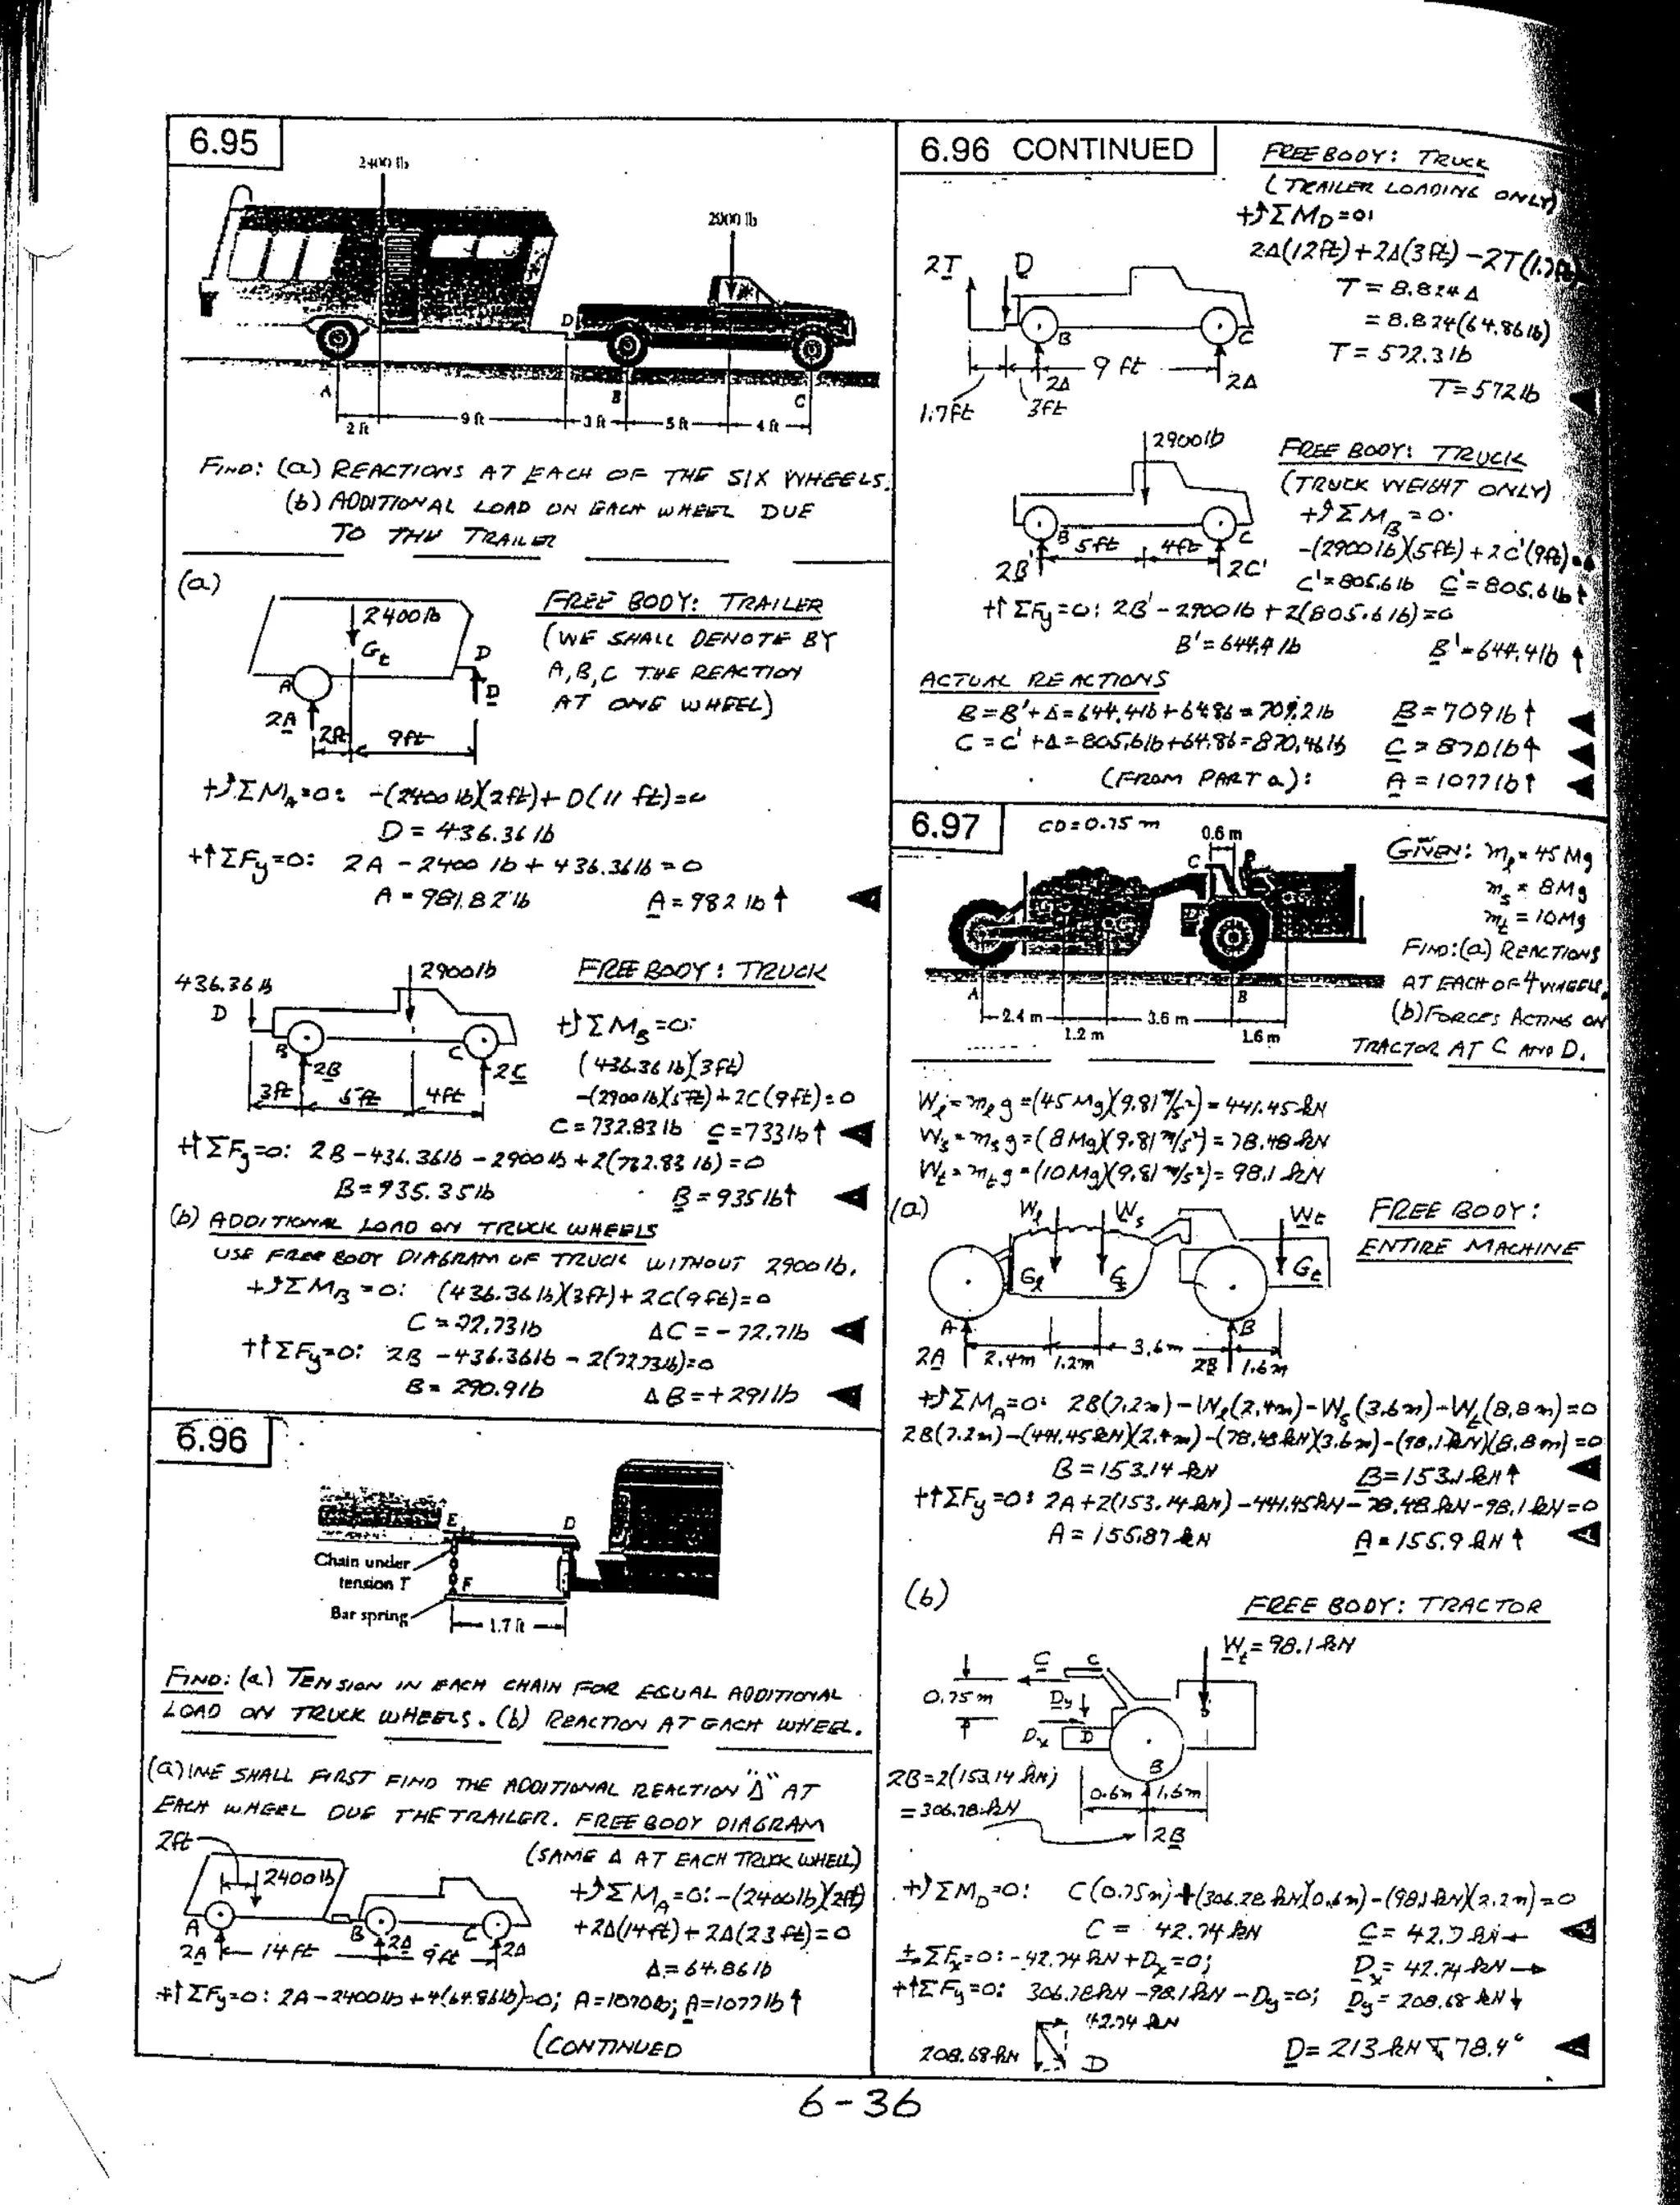 6.95
2400 lb
2900 lb
D
A
B
C
2 ft
9 ft
3 ft
5 ft
4 ft
FIND: (a) REACTIONS AT EACH OF THE SIX WHEELS.
(b) ADDITIONAL LOAD ON EACH WHEEL DUE
TO THE TRAILER
(a)
FREE BODY: TRAILER
(WE SHALL DENOTE BY
A, B, C THE REACTION
AT ONE WHEEL)
2400 lb
Gt
D
D
A
2A
2ft
9ft
+↑ΣMA=0: -(2400 lb)(2ft)+D(11 ft)=0
D = 436.36 lb
+↑ΣFy=0: 2A - 2400 lb + 436.36 lb = 0
A = 981.82 lb A = 982 lb ↑
436.36 lb
D
2900 lb
FREE BODY: TRUCK
B
C
2B
2C
3ft
5ft
4ft
+ΣMB=0:
(436.36 lb)(3ft)
-(2900 lb)(5ft)+2C(9ft)=0
C = 732.83 lb C = 733 lb ↑
+↑ΣFy=0: 2B - 436.36 lb - 2900 lb + 2(732.83 lb) = 0
B = 935.35 lb B = 935 lb ↑
(b) ADDITIONAL LOAD ON TRUCK WHEELS
USE FREE BODY DIAGRAM OF TRUCK WITHOUT 2900 lb.
+ΣMB=0: (436.36 lb)(3ft)+2C(9ft)=0
C = -72.73 lb ΔC = -72.7 lb
+↑ΣFy=0: 2B - 436.36 lb - 2(72.73 lb)=0
B = 290.9 lb ΔB = +291 lb
6.96
E
D
Chain under
tension T
F
Bar spring
1.7 ft
FIND: (a) TENSION IN EACH CHAIN FOR EQUAL ADDITIONAL
LOAD ON TRUCK WHEELS. (b) REACTION AT EACH WHEEL.
(a) WE SHALL FIRST FIND THE ADDITIONAL REACTION "Δ" AT
EACH WHEEL DUE THE TRAILER. FREE BODY DIAGRAM
(SAME Δ AT EACH TRUCK WHEEL)
2ft
2400 lb
A
B
C
2A
14 ft
2Δ
9 ft
2Δ
+ΣMA=0: -(2400 lb)(2ft)
+2Δ(14ft)+2Δ(23ft)=0
Δ = 64.86 lb
+↑ΣFy=0: 2A - 2400 lb + 4(64.86 lb)=0; A=1070 lb; A=1077 lb ↑
(CONTINUED
6.96 CONTINUED
FREE BODY: TRUCK
(TRAILER LOADING ONLY)
+ΣMD=0:
2Δ(12ft)+2Δ(3ft)-2T(1.7ft)
T = 8.824 Δ
= 8.824(64.86 lb)
T = 572.3 lb
T = 572 lb
2T
D
B
C
2Δ
9 ft
2Δ
1.7ft
3ft
2900 lb
FREE BODY: TRUCK
(TRUCK WEIGHT ONLY)
+ΣMB=0:
-(2900 lb)(5ft)+2C'(9ft)=
C'=805.6 lb C'=805.6 lb ↑
B
5ft
4ft
C
2B'
2C'
+↑ΣFy=0: 2B' - 2900 lb + 2(805.6 lb)=0
B'=644.4 lb B'=644.4 lb ↑
ACTUAL REACTIONS
B=B'+Δ=644.4 lb+64.86=709.2 lb B=709 lb ↑
C=C'+Δ=805.6 lb+64.86=870.46 lb C=870 lb ↑
(FROM PART a): A=1077 lb ↑
6.97
CD=0.75 m
0.6 m
C
D
A
B
2.4 m
1.2 m
3.6 m
1.6 m
GIVEN: ml = 45 Mg
ms = 8 Mg
mt = 10 Mg
FIND: (a) REACTIONS
AT EACH OF 4 WHEELS.
(b) FORCES ACTING ON
TRACTOR AT C AND D.
Wl = ml g = (45 Mg)(9.81 m/s²) = 441.45 kN
Ws = ms g = (8 Mg)(9.81 m/s²) = 78.48 kN
Wt = mt g = (10 Mg)(9.81 m/s²) = 98.1 kN
(a)
FREE BODY:
ENTIRE MACHINE
Wl
Ws
Wt
Gl
Gs
Gt
A
B
2A
2.4m
1.2m
3.6m
2B
1.6m
+ΣMA=0: 2B(7.2m)-Wl(2.4m)-Ws(3.6m)-Wt(8.8m)=0
2B(7.2m)-(441.45kN)(2.4m)-(78.48kN)(3.6m)-(98.1kN)(8.8m)=0
B=153.14 kN B=153.1 kN ↑
+↑ΣFy=0: 2A+2(153.14 kN)-441.45kN-78.48kN-98.1kN=0
A = 155.87 kN A=155.9 kN ↑
(b)
FREE BODY: TRACTOR
Wt = 98.1 kN
C
C
0.75m
Dy
Dx
D
B
2B=2(153.14 kN)
=306.28 kN
0.6m
1.6m
2B
+ΣMD=0: C(0.75m)+(306.28 kN)(0.6m)-(98.1kN)(2.2m)=0
C = 42.74 kN C = 42.7 kN ←
ΣFx=0: -42.74 kN+Dx=0; Dx=42.74 kN →
+↑ΣFy=0: 306.28kN-98.1kN-Dy=0; Dy=208.68 kN ↓
42.74 kN
208.68 kN
D
D=213 kN 78.4°
6-36